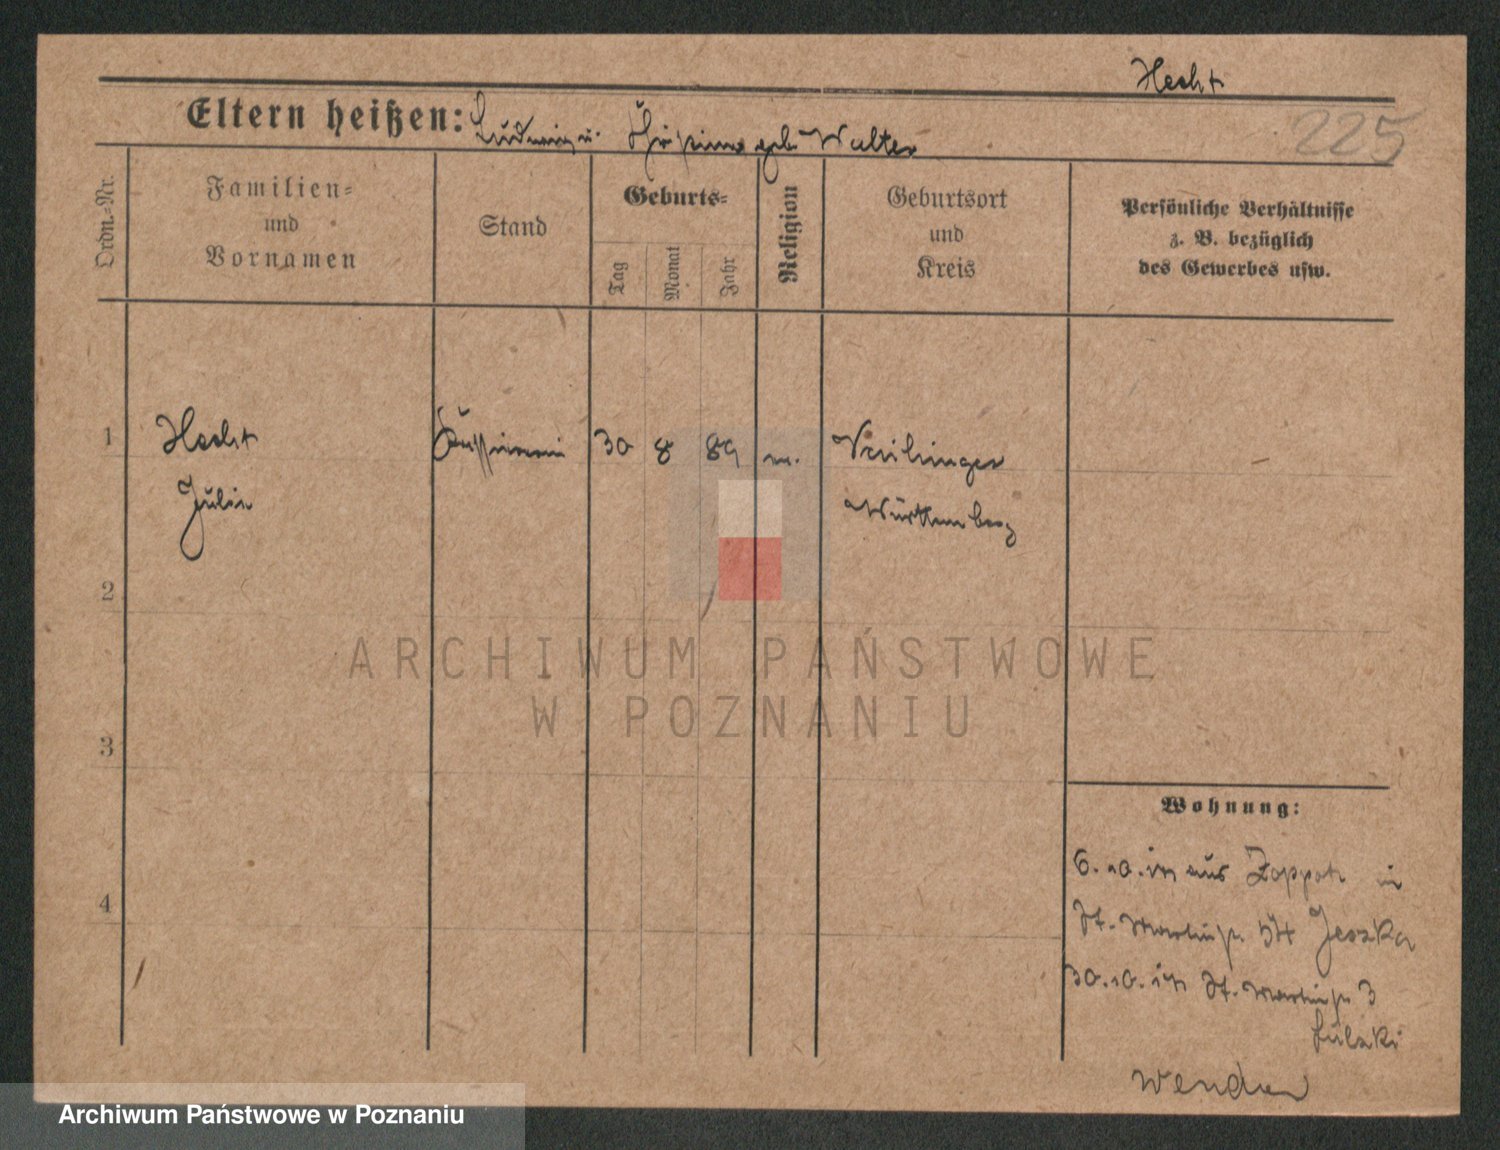 Hecht
Eltern heißen: Ludwig u. geb. Walter
225
Ordn.-Nr.
Familien-
und
Vornamen
Stand
Geburts-
Tag
Monat
Jahr
Religion
Geburtsort
und
Kreis
Persönliche Verhältnisse
z. B. bezüglich
des Gewerbes usw.
1
Hecht
Julie
30
8
89
Württemberg
2
3
4
Wohnung:
6.10. aus Zoppot in
St. Martinstr. 54 Jeszka
30.10. St. Martinstr. 3
wenden
ARCHIWUM PAŃSTWOWE
W POZNANIU
Archiwum Państwowe w Poznaniu